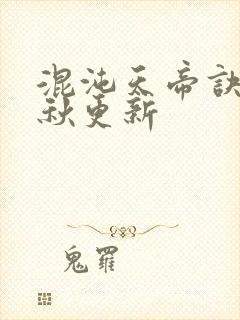 混沌天帝诀
秋更新
鬼罗